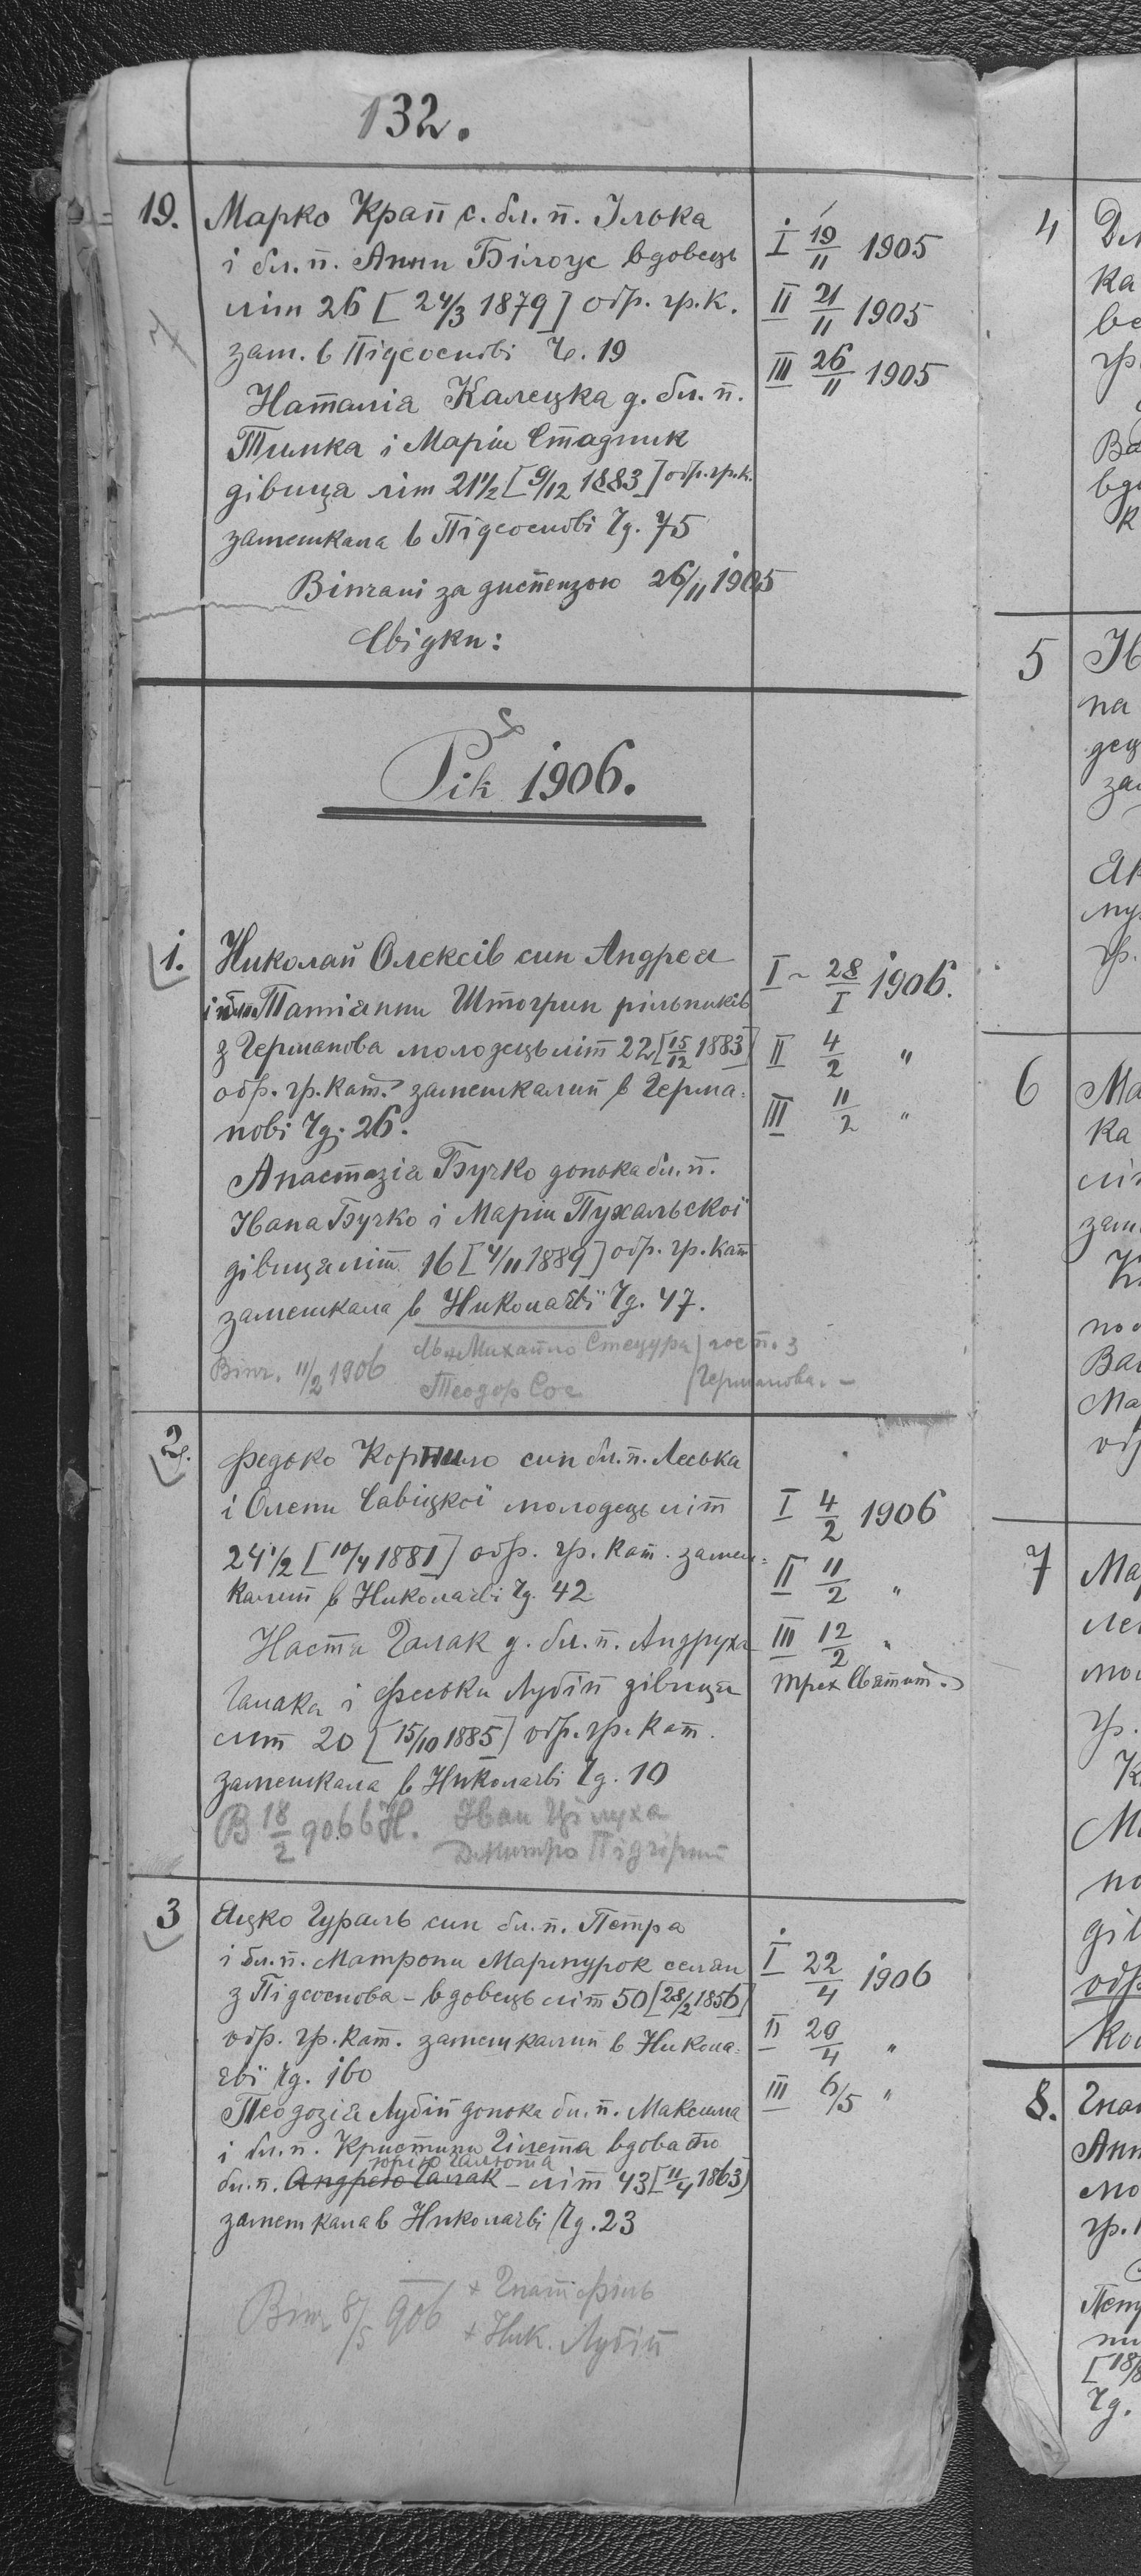 132.
19. Марко Крап с. бл. п. Ілька
і бл. п. Анни Білоус вдовець
літ 26 [24/3 1879] обр. гр. к.
зам. в Підсоснові Ч. 19
Наталія Калецка д. бл. п.
Тимка і Марії Стадник
дівиця літ 21 1/2 [9/12 1883] обр. гр. к.
замешкала в Підсоснові Чд. 75
Вінчані за диспензою 26/11 1905
Свідки:
I 19/11 1905
II 21/11 1905
III 26/11 1905
Рік 1906.
1. Николай Олексів син Андрея
і Татіянни Штогрин рільників
з Германова молодець літ 22 [15/12 1883]
обр. гр. кат. замешкалий в Герма-
нові Чд. 26.
Анастазія Бучко донька бл. п.
Івана Бучко і Марії Пухальскої
дівиця літ 16 [4/11 1889] обр. гр. кат
замешкала в Николаєві Чд. 47.
Вінч. 11/2 1906 Михайло Стецура госп. з
Теодор Сос Германова. -
I ~ 28/I 1906.
II 4/2 "
III 11/2 "
2. Федько Корпило син бл. п. Леська
і Олени Савіцкої молодець літ
24 1/2 [10/4 1881] обр. гр. кат. замеш-
калий в Николаєві Чд. 42
Настя Галак д. бл. п. Андруха
Галака і Феськи Лубій дівиця
літ 20 [15/10 1885] обр. гр. кат.
замешкала в Николаєві Чд. 10
В 18/2 906 в Н. Іван Цілуха
Дмитро Підгірний
I 4/2 1906
II 11/2 "
III 12/2 "
трех Святит.
3 Яцко Гураль син бл. п. Петра
і бл. п. Матрони Мармурок селян
з Підсоснова - вдовець літ 50 [28/2 1856]
обр. гр. кат. замешкалий в Никола-
єві Чд. 160
Теодозія Лубій донька бл. п. Максима
і бл. п. Кристини Гілета вдова по
Юрію Гальота
бл. п. Андрею Галак - літ 43 [11/4 1863]
замешкала в Николаєві Чд. 23
Вінч 8/5 906 + Гнат Філь
+ Ник. Лубій
I 22/4 1906
II 29/4 "
III 6/5 "
4
ка
5
на
6 Ма
ка
7 Ма
8. Гнат